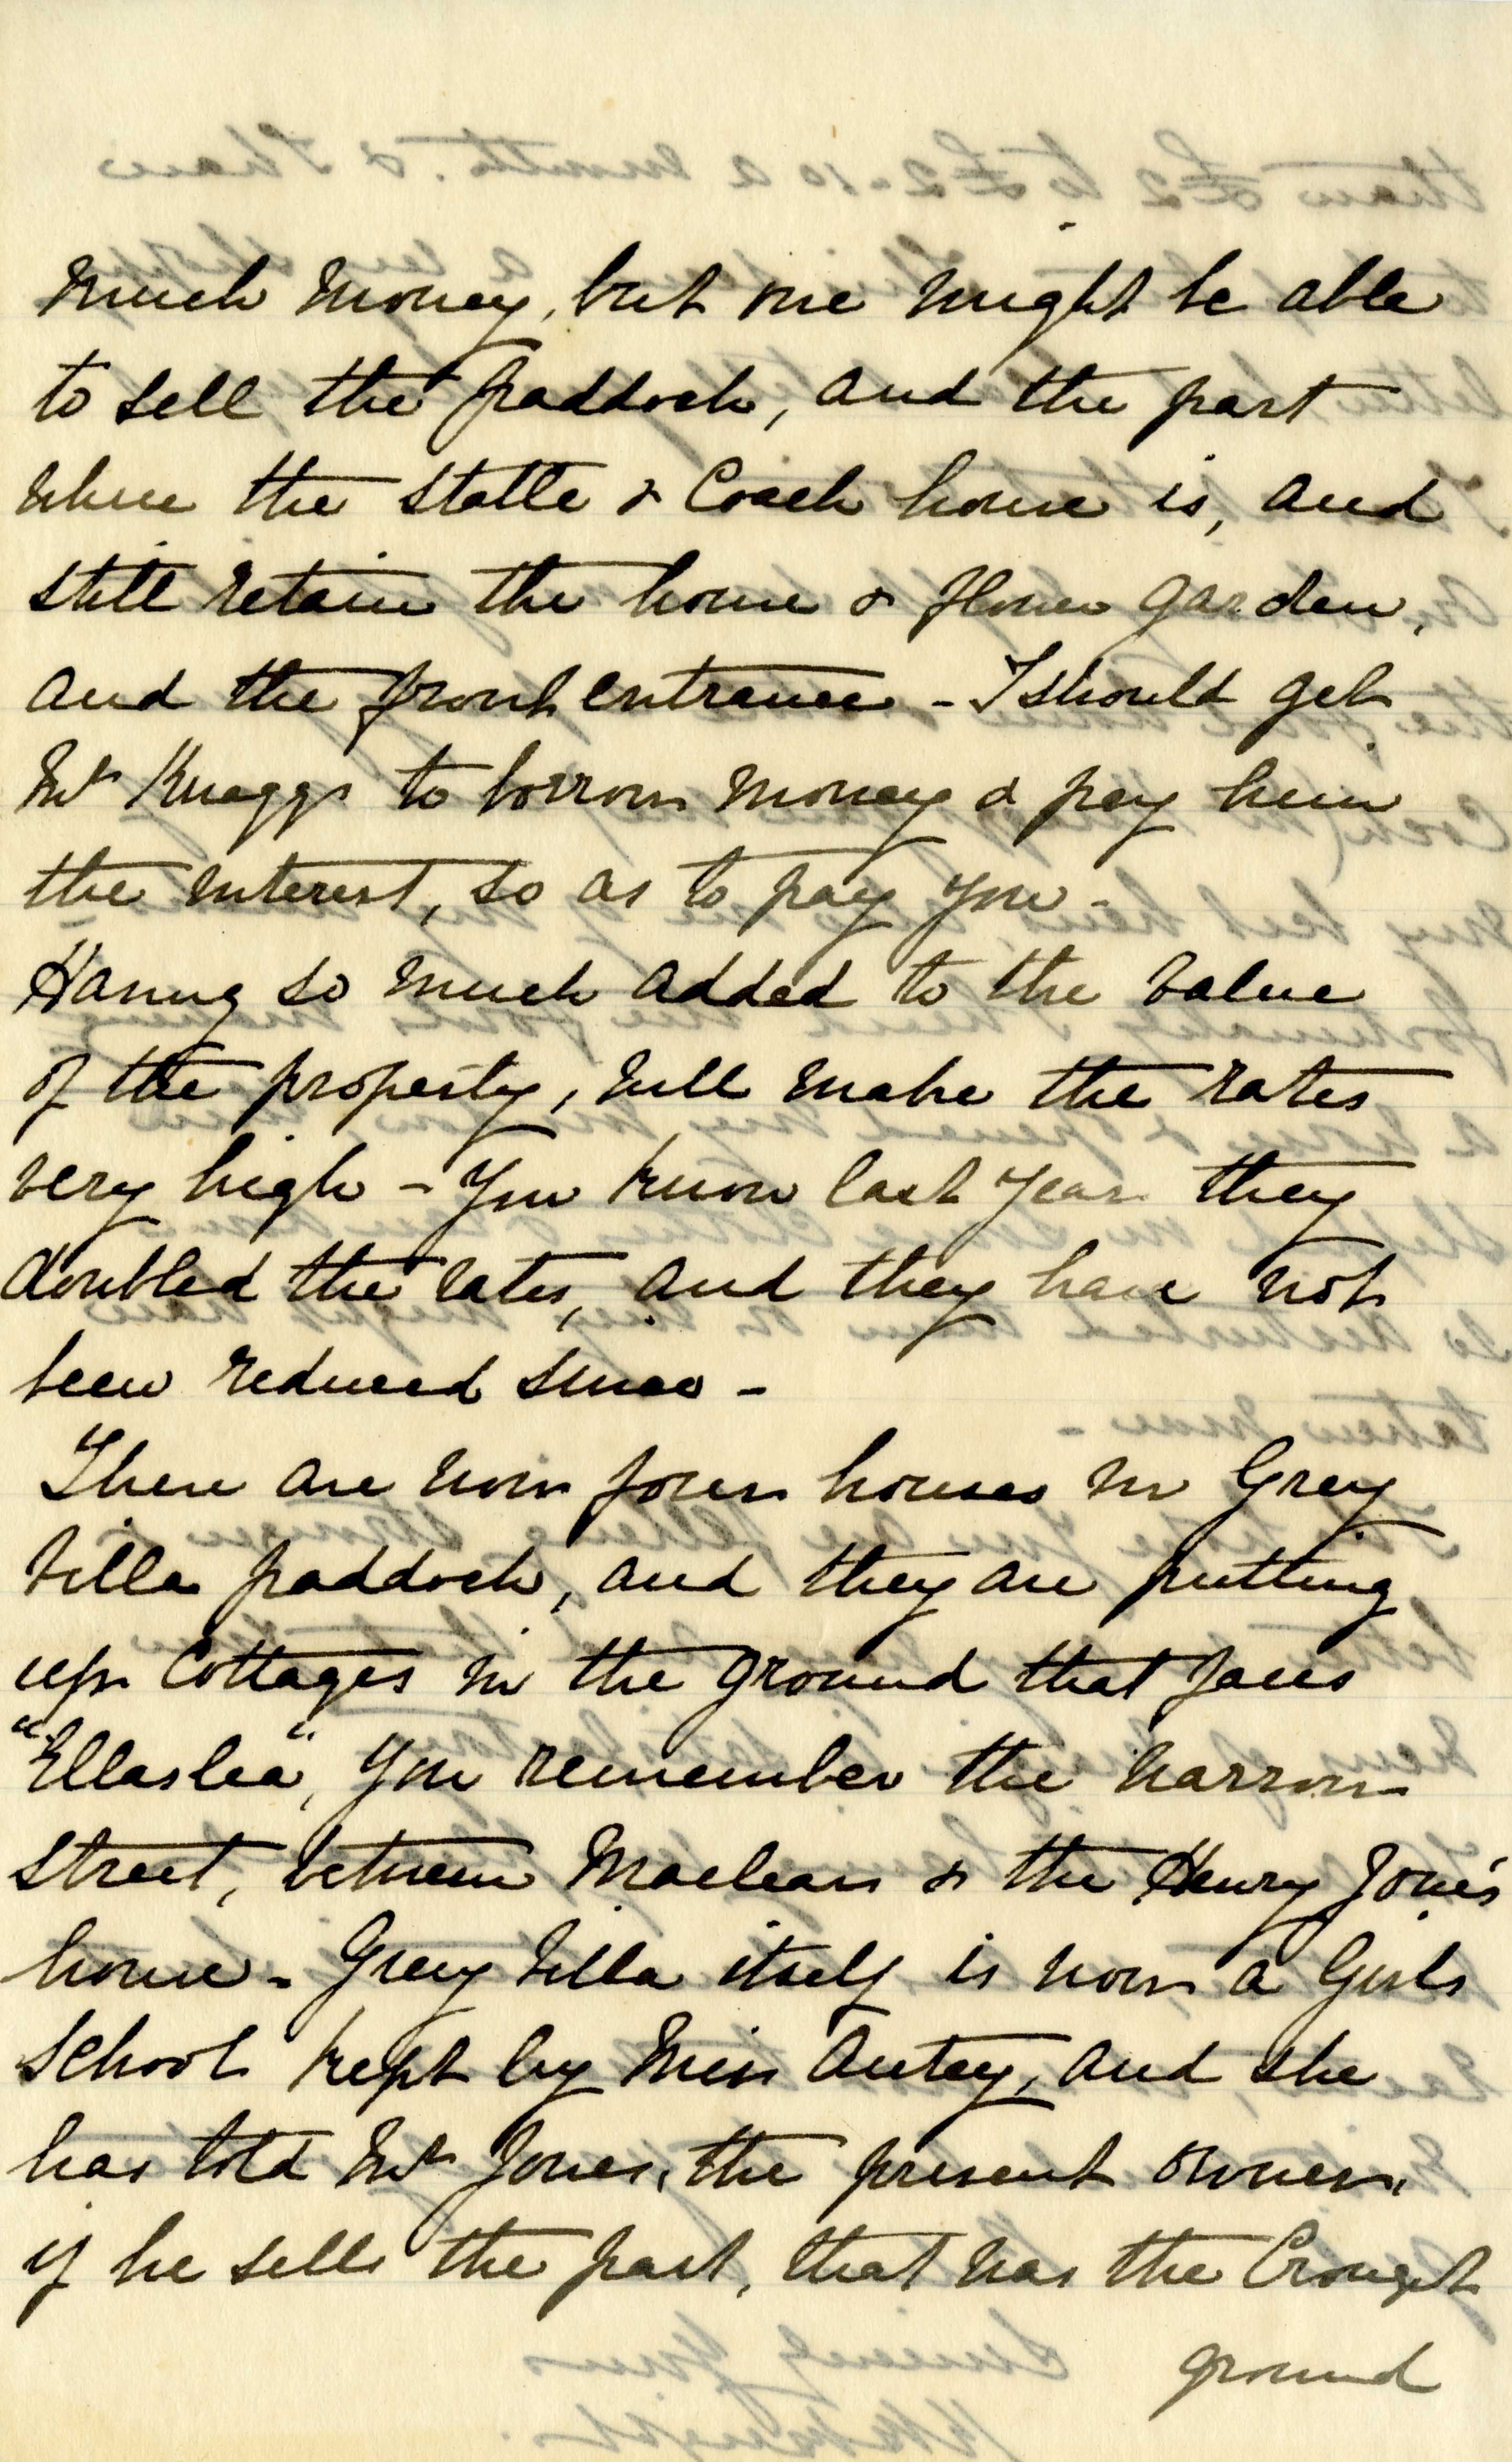 much money, but one might be able
to sell the paddock, and the part
where the stable & Coach house is, and
still retain the house & flower garden,
and the front entrance - I should get
Mr Knaggs to borrow money & pay him
the interest, so as to pay you -
Having so much added to the value
of the property, will make the rates
very high - You know last year they
doubled the rates, and they have not
been reduced since -
There are now four houses in Grey
Villa paddock, and they are putting
up Cottages in the ground that faces
"Ellaslea", you remember the narrow
street, between Macleans & the Henry Jones
house - Grey Villa itself is now a Girls
School kept by Miss Autey, and she
has told Mr Jones, the present owner,
if he sells the part, that was the Croquet
ground